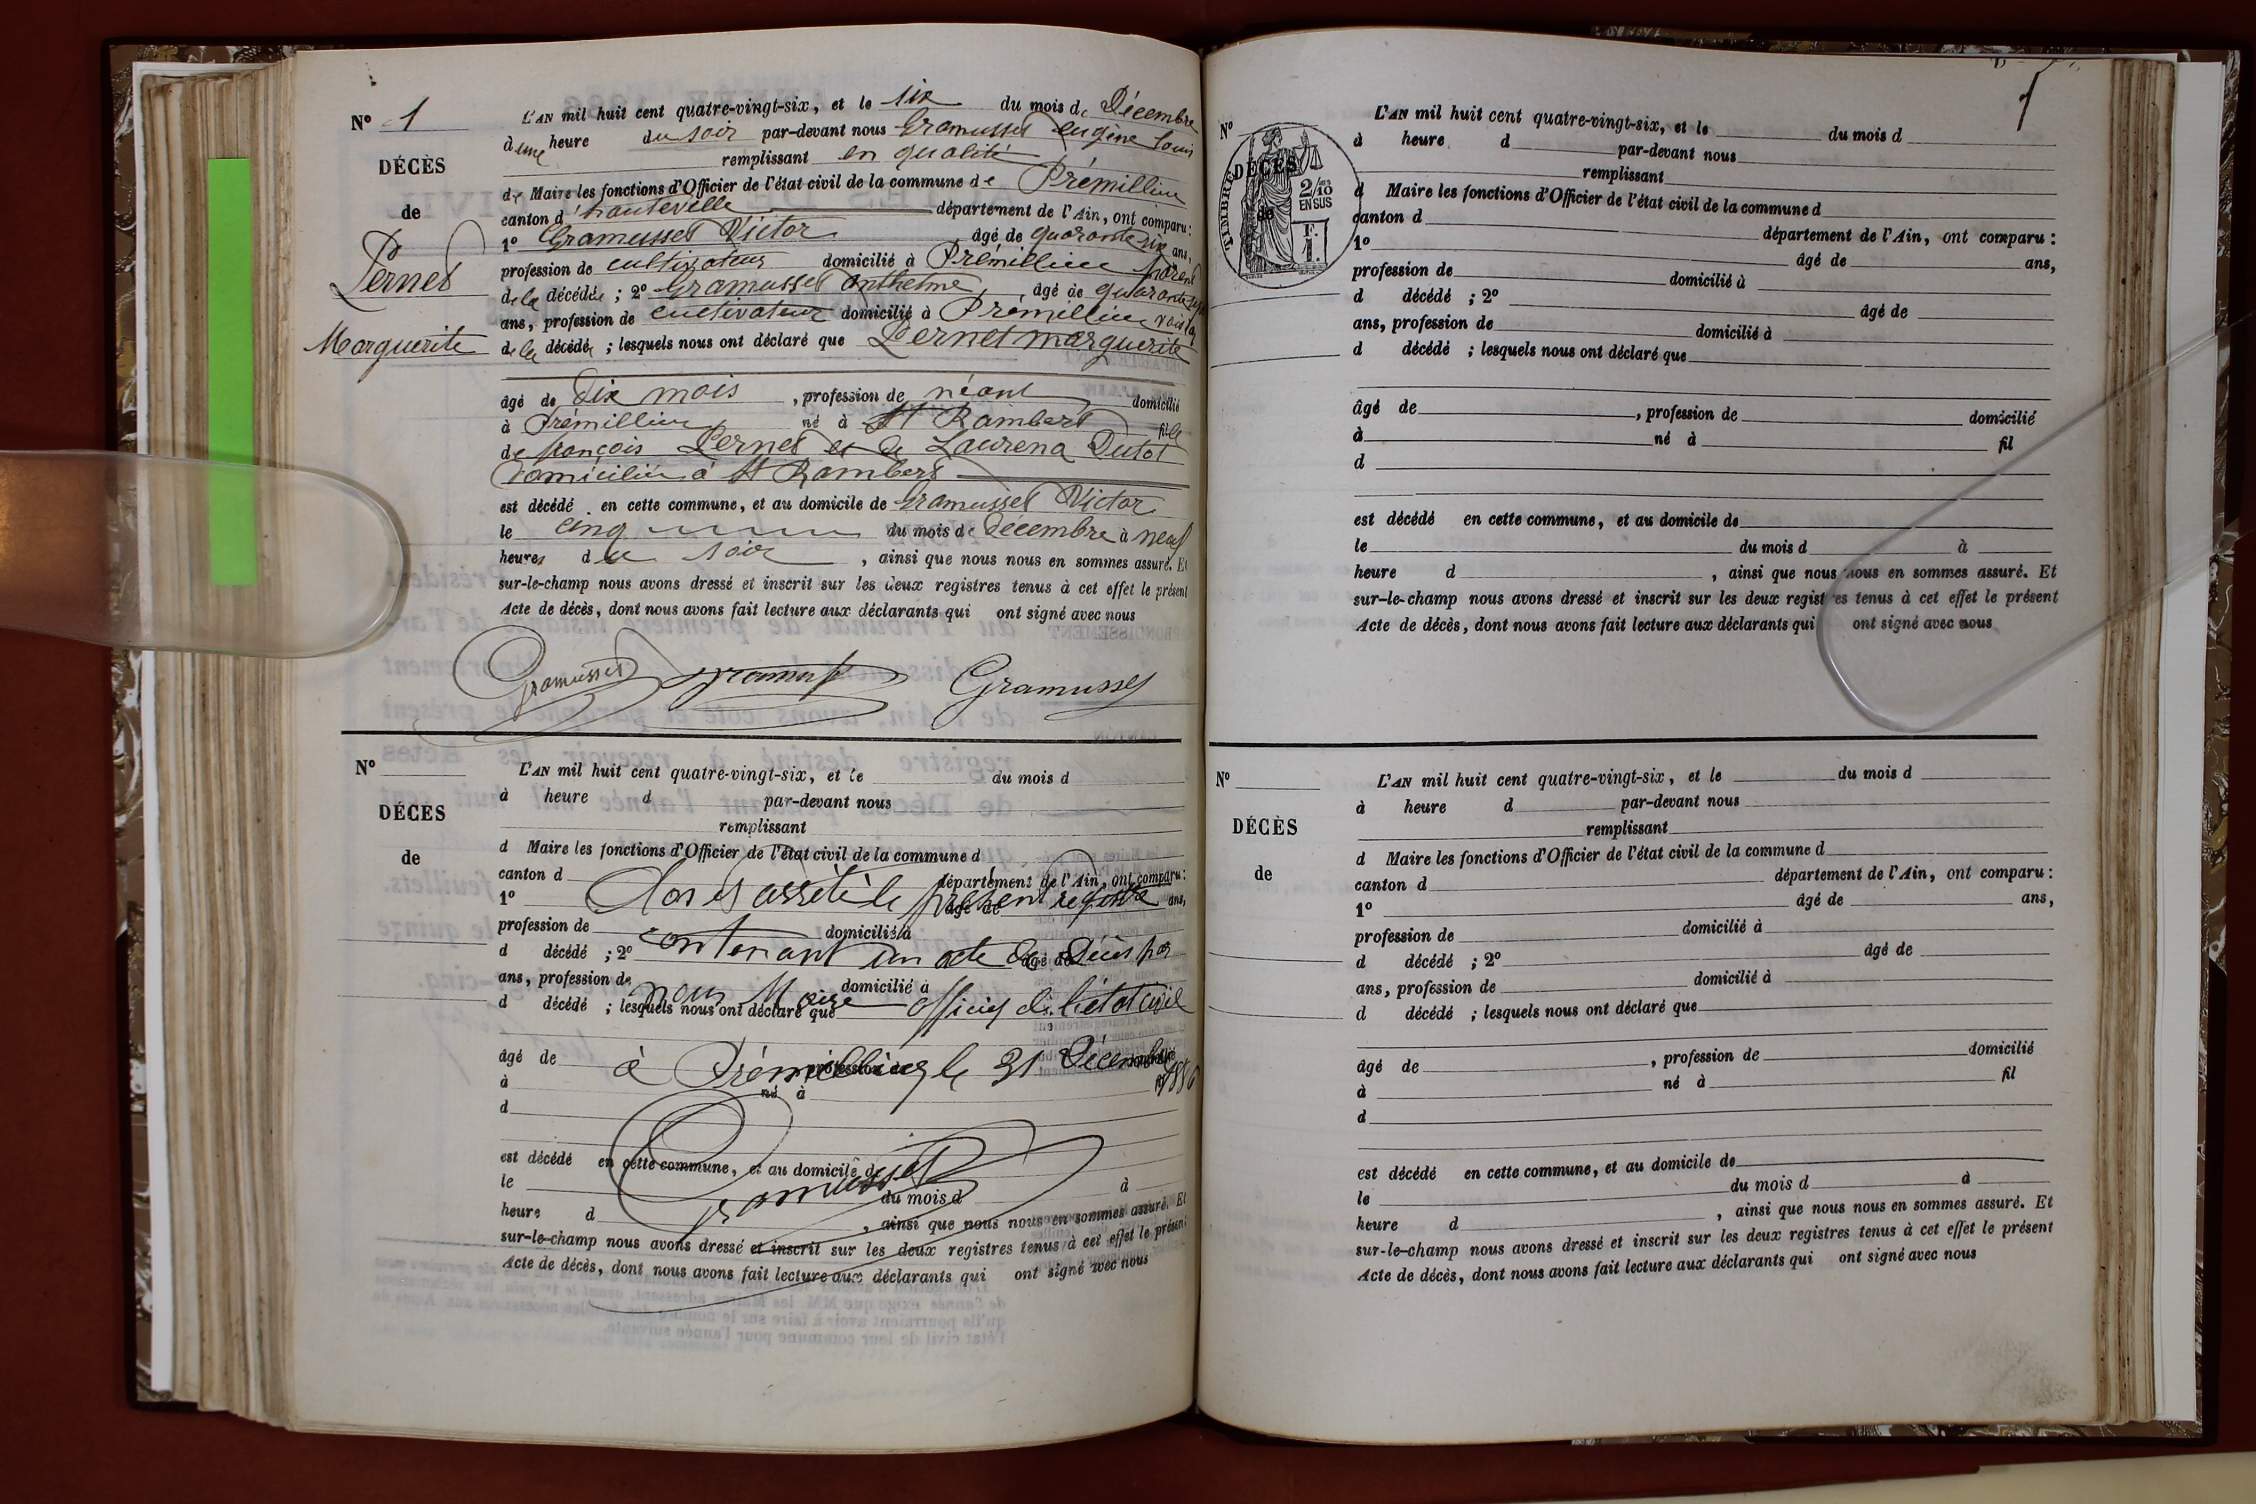 N° 1
DÉCÈS
de
Pernet
Marguerite
L'AN mil huit cent quatre-vingt-six, et le six du mois de Décembre
à une heure du soir par-devant nous Gramusset eugène Louis
remplissant en qualité
de Maire les fonctions d'Officier de l'état civil de la commune de Prémillieu
canton d'hauteville département de l'Ain, ont comparu :
1° Gramusset Victor âgé de quarante six ans,
profession de cultivateur domicilié à Prémillieu parent
de la décédée ; 2° Gramusset anthelme âgé de quarante
ans, profession de cultivateur domicilié à Prémillieu voisin
de la décédée ; lesquels nous ont déclaré que Pernet marguerite
âgé de dix mois, profession de néant domicilié
à Prémillieu né à St Rambert fille
de françois Pernet et de Laurena Dutot
Domicilié à St Rambert
est décédé en cette commune, et au domicile de Gramusset Victor
le cinq du mois de Décembre à neuf
heures du soir, ainsi que nous nous en sommes assuré. Et
sur-le-champ nous avons dressé et inscrit sur les deux registres tenus à cet effet le présent
Acte de décès, dont nous avons fait lecture aux déclarants qui ont signé avec nous
Gramusset Gramusset Gramusset
N°
DÉCÈS
de
L'AN mil huit cent quatre-vingt-six, et le du mois d
à heure d par-devant nous
remplissant
d Maire les fonctions d'Officier de l'état civil de la commune d
canton d département de l'Ain, ont comparu :
1° âgé de ans,
Clos et arrêté le présent registre
profession de domicilié à
d décédé ; 2° âgé de
contenant un acte de Décès par
ans, profession de domicilié à
d décédé ; lesquels nous ont déclaré que
nous Maire officier de l'état civil
âgé de , profession de domicilié
à Prémillieu le 31 Décembre 1886
à né à fil
d
est décédé en cette commune, et au domicile de
Gramusset
le du mois d à
heure d , ainsi que nous nous en sommes assuré. Et
sur-le-champ nous avons dressé et inscrit sur les deux registres tenus à cet effet le présent
Acte de décès, dont nous avons fait lecture aux déclarants qui ont signé avec nous
1
N°
DÉCÈS
de
TIMBRE
2/10 EN SUS
F. 1.
L'AN mil huit cent quatre-vingt-six, et le du mois d
à heure d par-devant nous
remplissant
d Maire les fonctions d'Officier de l'état civil de la commune d
canton d département de l'Ain, ont comparu :
1° âgé de ans,
profession de domicilié à
d décédé ; 2° âgé de
ans, profession de domicilié à
d décédé ; lesquels nous ont déclaré que
âgé de , profession de domicilié
à né à fil
d
est décédé en cette commune, et au domicile de
le du mois d à
heure d , ainsi que nous nous en sommes assuré. Et
sur-le-champ nous avons dressé et inscrit sur les deux registres tenus à cet effet le présent
Acte de décès, dont nous avons fait lecture aux déclarants qui ont signé avec nous
N°
DÉCÈS
de
L'AN mil huit cent quatre-vingt-six, et le du mois d
à heure d par-devant nous
remplissant
d Maire les fonctions d'Officier de l'état civil de la commune d
canton d département de l'Ain, ont comparu :
1° âgé de ans,
profession de domicilié à
d décédé ; 2° âgé de
ans, profession de domicilié à
d décédé ; lesquels nous ont déclaré que
âgé de , profession de domicilié
à né à fil
d
est décédé en cette commune, et au domicile de
le du mois d à
heure d , ainsi que nous nous en sommes assuré. Et
sur-le-champ nous avons dressé et inscrit sur les deux registres tenus à cet effet le présent
Acte de décès, dont nous avons fait lecture aux déclarants qui ont signé avec nous